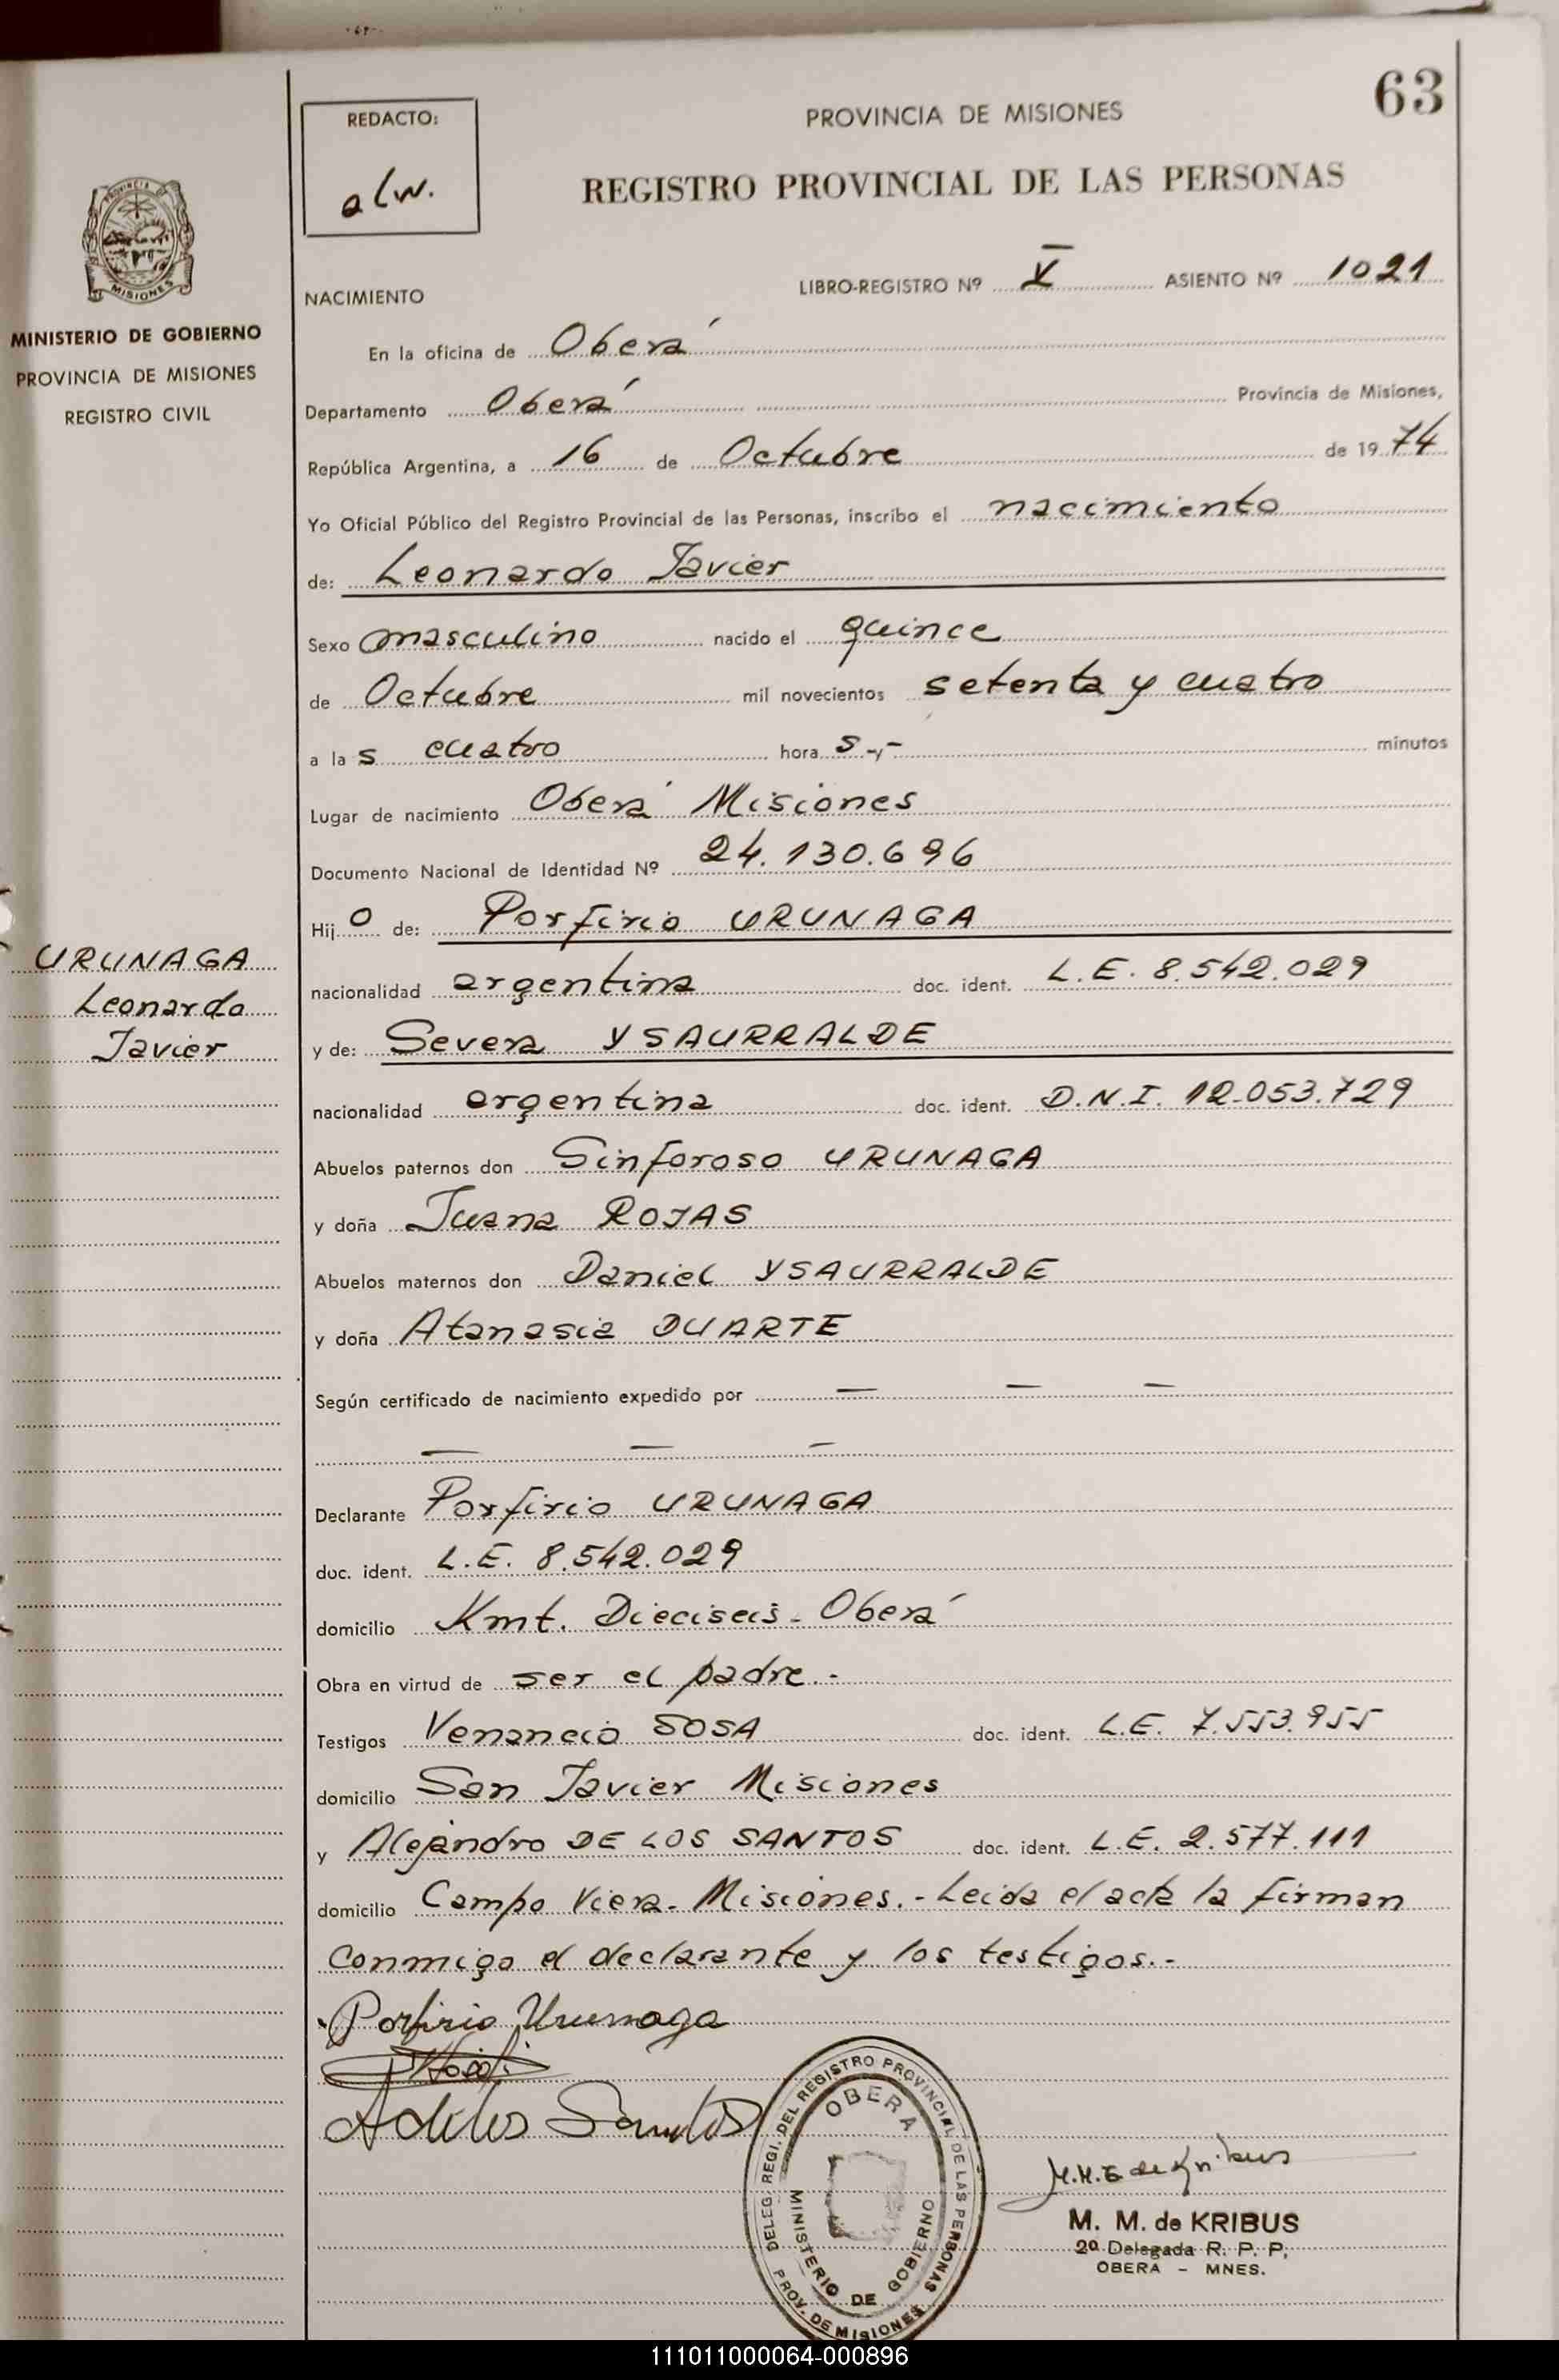 63
REDACTO:
alw.
PROVINCIA DE MISIONES
REGISTRO PROVINCIAL DE LAS PERSONAS
PROVINCIA DE
MISIONES
MINISTERIO DE GOBIERNO
PROVINCIA DE MISIONES
REGISTRO CIVIL
NACIMIENTO
LIBRO-REGISTRO Nº V ASIENTO Nº 1021
En la oficina de Oberá
Departamento Oberá Provincia de Misiones,
República Argentina, a 16 de Octubre de 1974
Yo Oficial Público del Registro Provincial de las Personas, inscribo el nacimiento
de: Leonardo Javier
Sexo masculino nacido el quince
de Octubre mil novecientos setenta y cuatro
a las cuatro horas.-,- minutos
Lugar de nacimiento Oberá Misiones
Documento Nacional de Identidad Nº 24.130.696
Hijo de: Porfirio URUNAGA
URUNAGA
Leonardo
Javier
nacionalidad argentina doc. ident. L.E. 8.542.029
y de: Severa YSAURRALDE
nacionalidad argentina doc. ident. D.N.I. 12.053.729
Abuelos paternos don Sinforoso URUNAGA
y doña Juana ROJAS
Abuelos maternos don Daniel YSAURRALDE
y doña Atanasia DUARTE
Según certificado de nacimiento expedido por — — —
— — —
Declarante Porfirio URUNAGA
doc. ident. L.E. 8.542.029
domicilio Kmt. Dieciseis - Oberá
Obra en virtud de ser el padre.-
Testigos Venancio SOSA doc. ident. L.E. 7.553.955
domicilio San Javier Misiones
y Alejandro DE LOS SANTOS doc. ident. L.E. 2.577.111
domicilio Campo Viera - Misiones.- Leida el acta la firman
conmigo el declarante y los testigos.-
Porfirio Urunaga
Santos
DELEG. REGI. DEL REGISTRO PROVINCIAL DE LAS PERSONAS
OBERA
MINISTERIO DE GOBIERNO
PROV. DE MISIONES
M. M. de KRIBUS
2ª Delegada R. P. P.
OBERA - MNES.
111011000064-000896